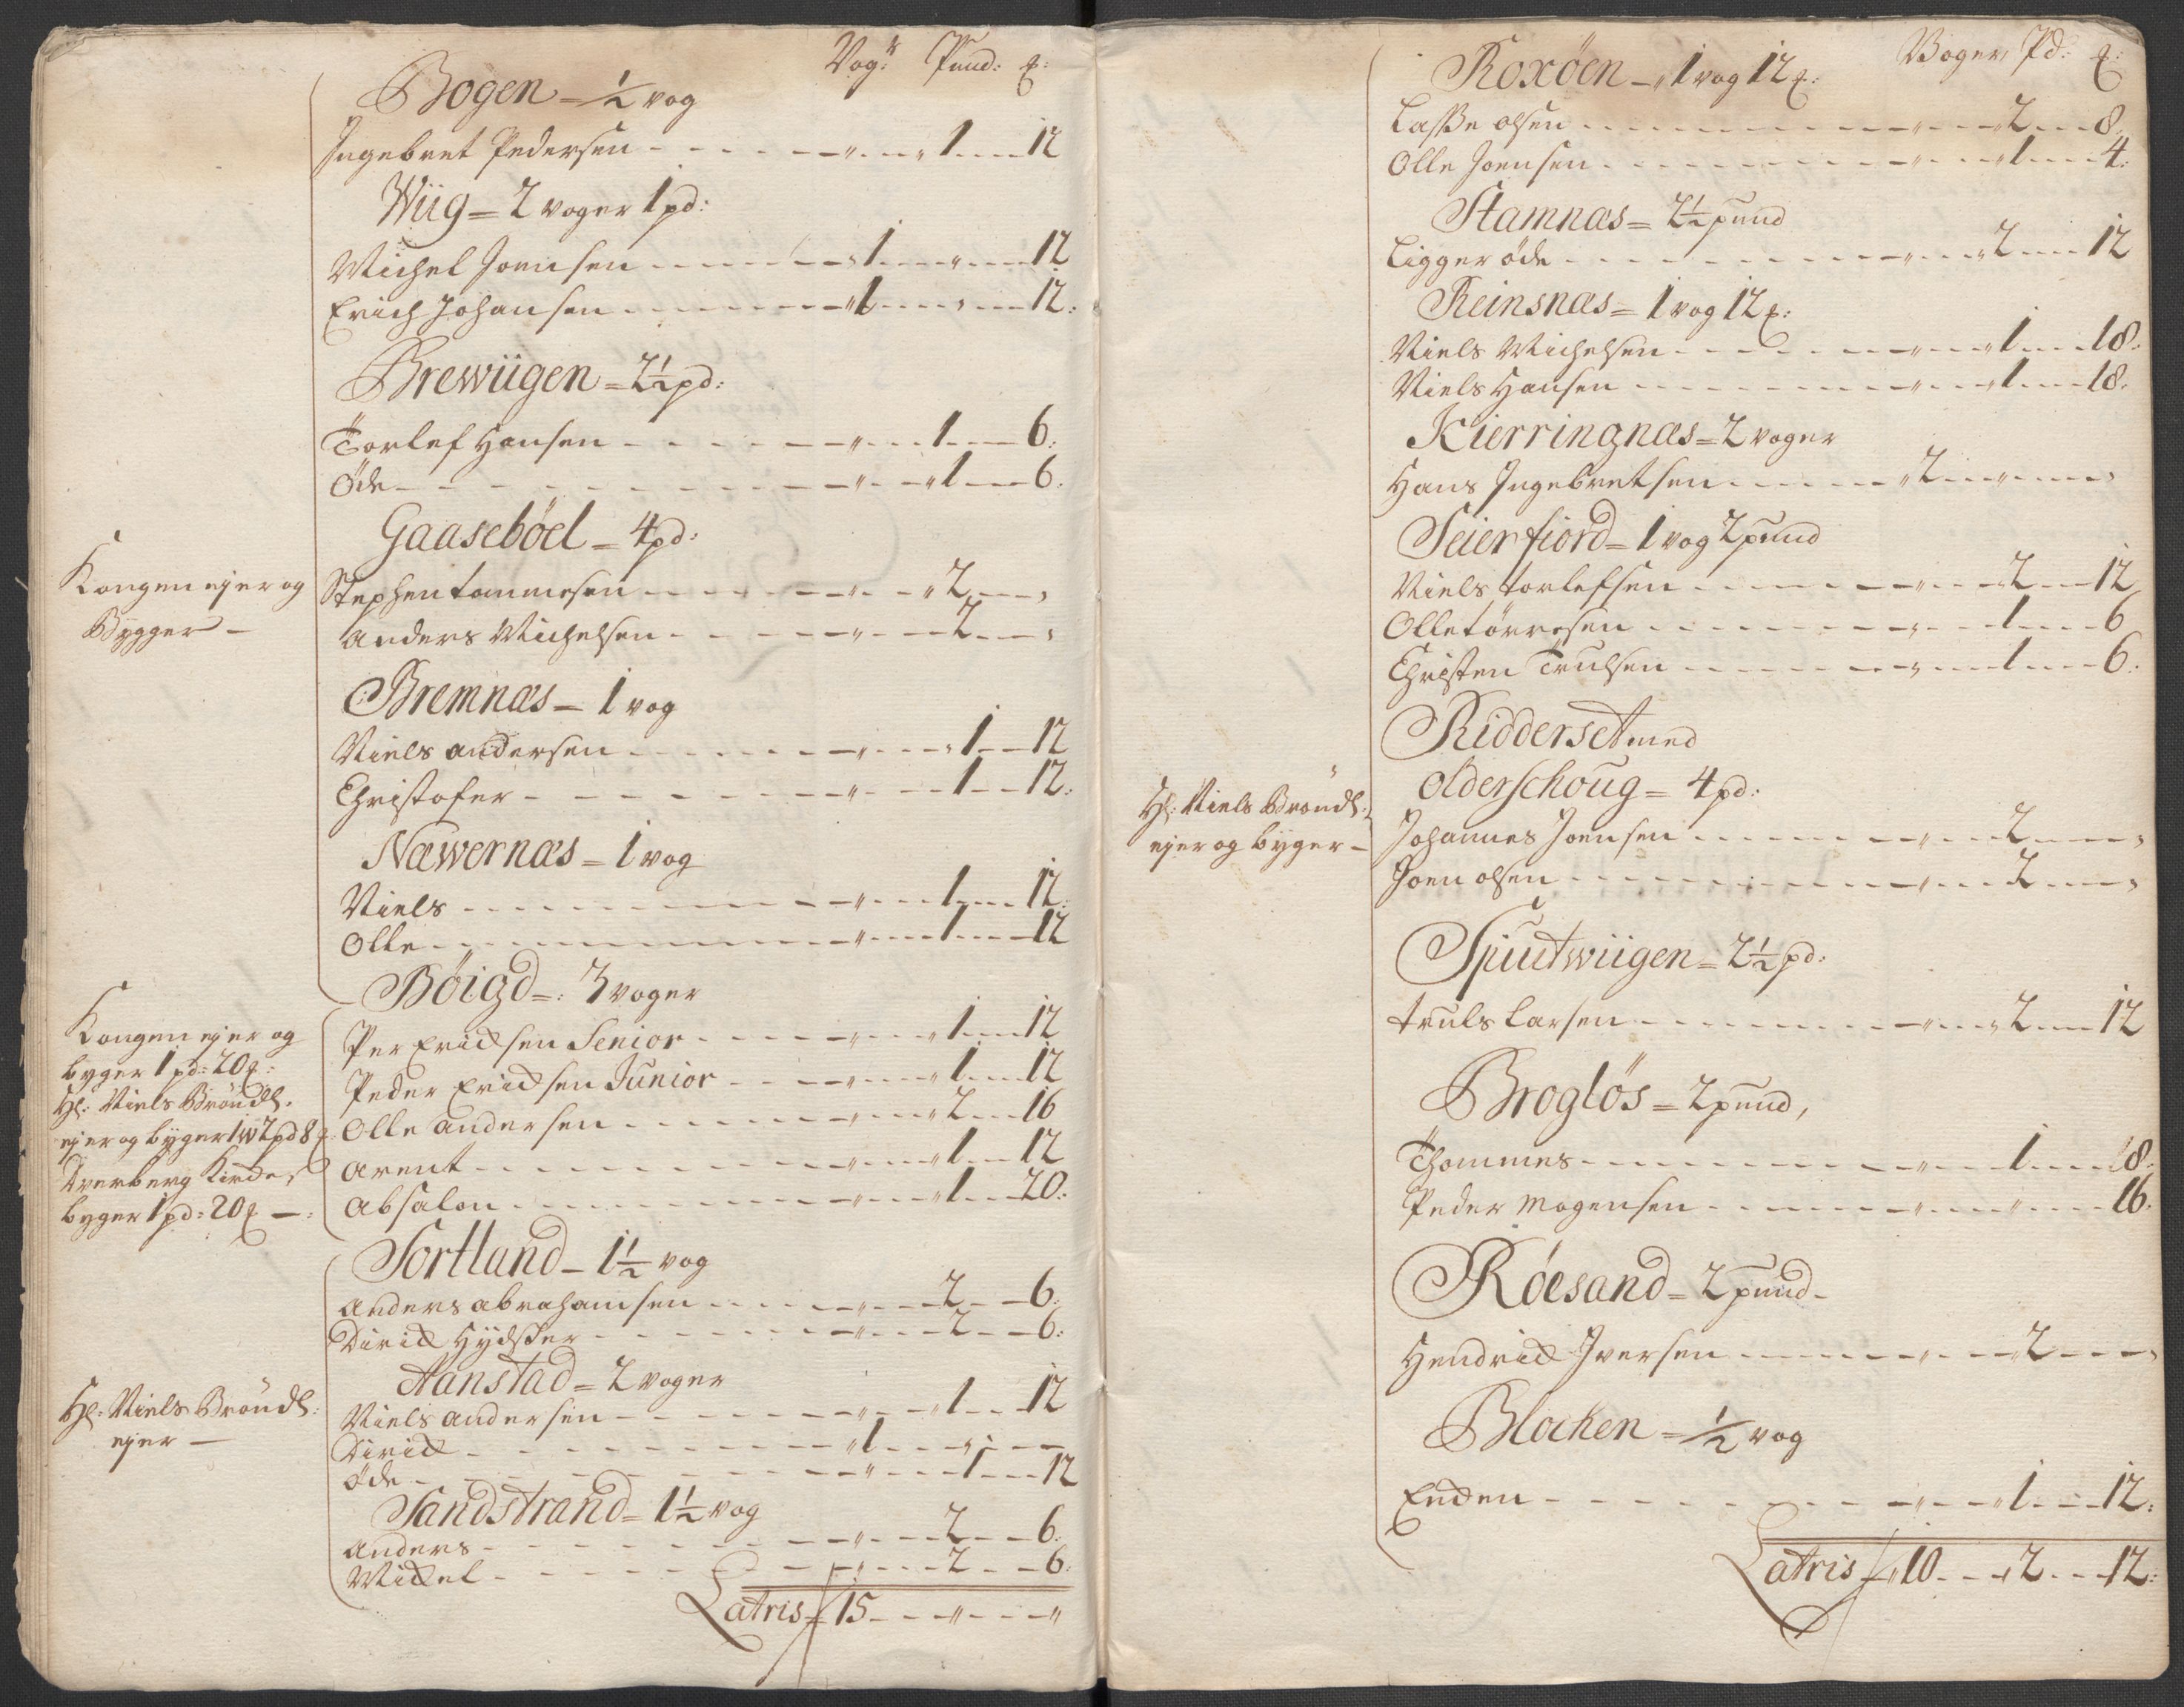 Vogr Pund: ℔:
Bogen = ½ vog
Ingebret Pedersen - - - „ - - „ 1 - - 12
Wiig = 2 voger 1 pd:
Michel Joensen - - - 1 - - „ - - 12
Erich Johansen - - - „ 1 - - „ - - 12:
Brewiigen = 2½ pd:
Torlef Hansen - - - „ - - 1 - - 6:
Øde - - - „ - - „ 1 - - 6:
Gaasebøel = 4 pd:
Kongen ejer og
Bygger -
Stephen tommesen - - - „ - - „ 2 - - „
Anders Michelsen - - - „ - - 2 - - „
Bremnæs - 1 vog
Niels Andersen - - - „ - - „ 1 - - 12
Christofer - - - „ - - 1 - - 12:
Næwernæs = 1 vog
Niels - - - „ - - 1 - - 12:
Olle - - - „ - - 1 - - 12
Bøigd = : 3 voger
Kongen ejer og
byger 1 pd: 20 ℔:
Hr: Niels Brøndl:
ejer og byger 1 w 2 pd 8 ℔
Dverberg Kirche,
byger 1 pd: 20 ℔ -:
Per Erichsen Senior - - - „ - - „ 1 - - 12
Peder Erichsen Junior - - - „ - - „ 1 - - 12
Olle Andersen - - - „ - - „ 2 - - 16
Arent - - - „ - - „ 1 - - 12
Absalon - - - „ - - „ 1 - - 20:
Sortland - 1½ vog
Anders Abrahamsen - - - „ - - 2 - - 6:
Dirich Hÿdsker - - - „ - - 2 - - 6:
Aanstad = 2 voger
Hr: Niels Brøndl:
ejer -
Niels Andersen - - - „ - - „ 1 - - 12
Dirich - - - „ 1 - - „ - -
Øde - - - „ - - 1 - - 12
Sandstrand = 1½ vog
Anders - - - „ - - 2 - - 6:
Michel - - - „ - - 2 - - 6:
Latris 15 - - „ - - „
Voger Pd: ℔:
Roxöen - „ 1 vog 12 ℔:
Lasse olsen - - - „ - - „ 2 - - 8:
Olle Joensen - - - „ - - „ 1 - - 4:
Stamnæs = 2½ pund
Ligger øde - - - „ - - „ 2 - - 12
Reinsnæs = 1 vog 12 ℔:
Niels Michelsen - - - „ - - „ 1 - - 18:
Niels Hansen - - - „ - - „ 1 - - 18:
Kierringnæs = 2 voger
Hans Ingebretsen - - - „ 2 - - „ - - „
Seierfiord = 1 vog 2 pund
Niels torlefsen - - - „ - - 2 - - 12
Olle tørresen - - - „ - - 1 - - 6
Christen Trulsen - - - „ - - 1 - - 6:
Ridderset med
olderschoug = 4 pd:
Hr: Niels Brøndl:
ejer og byger -
Johannes Joensen - - - „ - - 2 - - „
Joen olsen - - - „ - - 2 - - „
Spiutwiigen = 2½ pd:
truls Larsen - - - „ - - „ 2 - - 12
Brogløs = 2 pund,
Thommes - - - „ - - 1 - - 8:
Peder Mogensen - - - „ - - „ - - 16:
Røesand = 2 pund -
Hendrich Iversen - - - „ - - 2 - - „
Blochen = ½ vog
Enchen - - - „ - - „ 1 - - 12:
Latris „ 10 - - „ 2 - - 12: